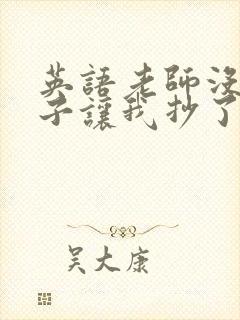 英語老師沒
子讓我抄了
吴大康